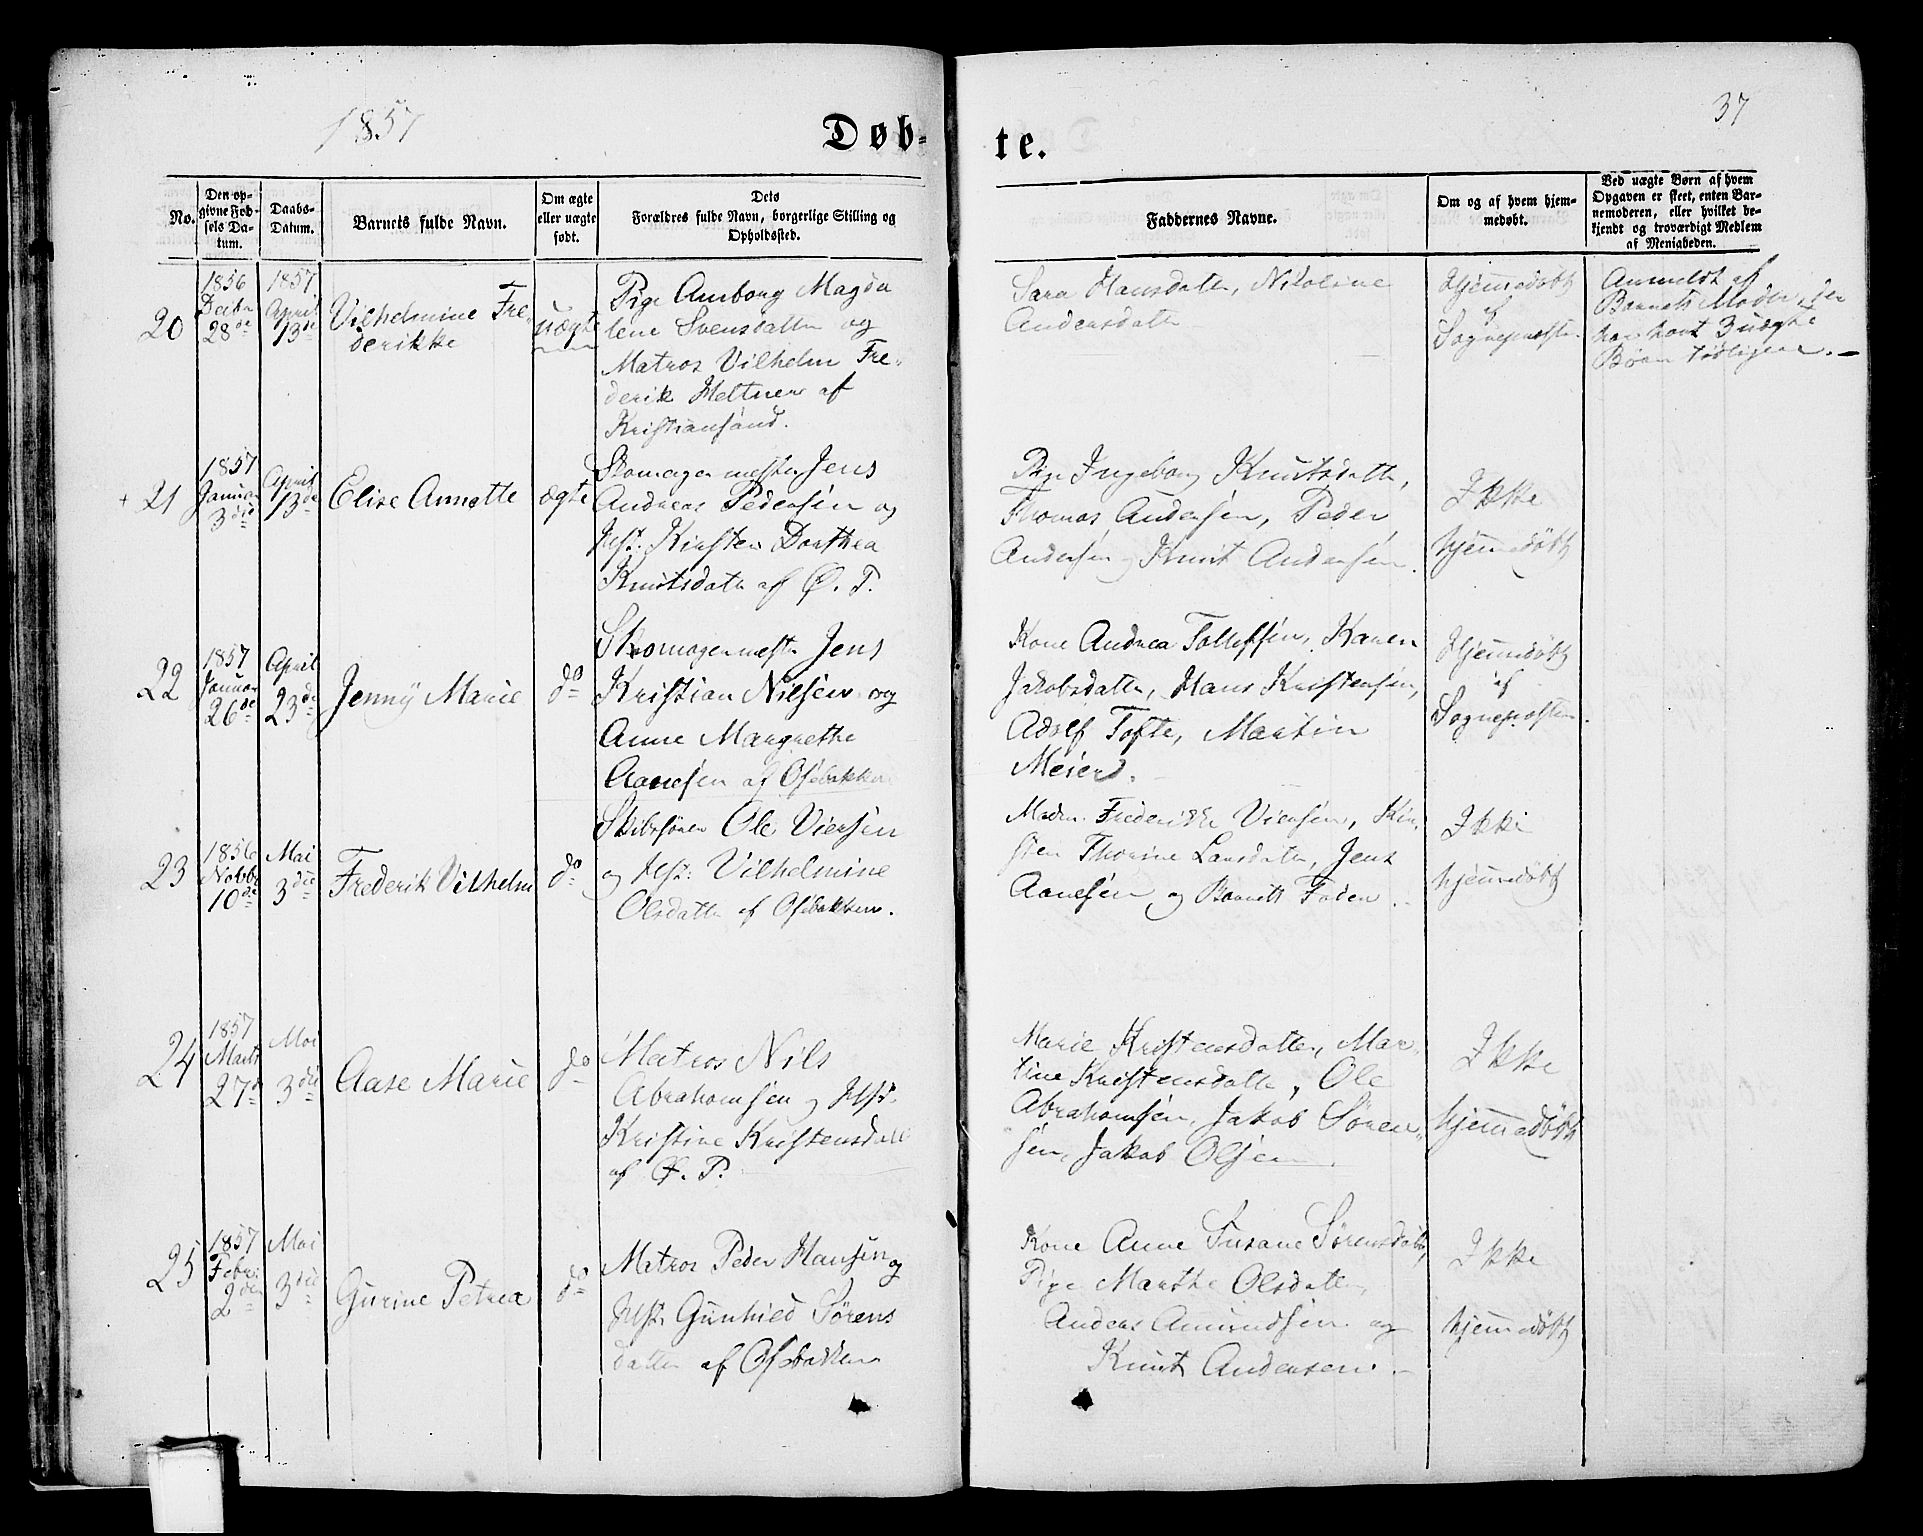 1857
Døb-
te.
37
No.
Den op-
givne Fød-
sels Da-
tum.
Daabs-
Datum.
Barnets fulde Navn.
Om ægte
eller uægte
født.
Dets
Forældres fulde Navn, borgerlige Stilling og
Opholdssted.
Faddernes Navne.
Om og af hvem hjem-
medøbt.
Ved uægte Børn af hvem
Opgaven er skeet, enten Bar-
nemoderen, eller hvilket be-
kjendt og troværdigt Medlem
af Menigheden.
20
1856
Decbr
28de
1857
April
13de
Vilhelmine Fre-
derikke
uægte
Pige Anborg Magda
lene Svensdatter og
Matros Vilhelm Fre-
derik Heltner af
Kristiansand.
Sara Hansdatter, Nikoline
Andersdatter
Hjemmedøbt
af
Sognepræsten.
Anmeldt af
Barnets Moder, der
har havt 3 uægte
Børn tidligere. —
+ 21
1857
Januar
3die
April
13de
Elise Annette
ægte
Skomagermester Jens
Andreas Pedersen og
Hst. Kirsten Dorthea
Knutsdatter af Ø. T.
Pige Ingeborg Knutsdatter,
Thomas Andersen, Peder
Andersen og Knut Andersen.
Ikke
hjemmedøbt
22
1857
Januar
26de
April
23de
Jenny Marie
do
Skomagermester Jens
Kristian Nilsen og
Anne Margrethe
Aanesen af Osebakken
Kone Andrea Tollefsen, Karen
Jakobsdatter, Hans Kristensen,
Adolf Tofte, Martin
Meier.
Hjemmedøbt
af
Sognepræsten.
23
1856
Novbr
10de
Mai
3die
Frederik Vilhelm
do
Skibsfører Ole Viersen
og Hst. Vilhelmine
Olsdatter af Osebakken.
Madm. Frederikke Viersen, Kir-
sten Thorine Larsdatter, Jens
Aanesen og Barnets Fader.
Ikke
hjemmedøbt
24
1857
Marts
27d
Mai
3die
Aase Marie
do
Matros Nils
Abrahamsen og Hst.
Kristine Kristensdatt
af Ø. P.
Marie Kristensdatter, Mar-
tine Kristensdatter, Ole
Abrahamsen, Jakob Søren-
sen, Jakob Olsen.
Ikke
hjemmedøbt
25
1857
Febr.
2den
Mai
3die
Gurine Petrea
do
Matros Peder Hansen og
Hst. Gunhild Sørens
datter af Osebakken
Kone Anne Susane Sørensdatter,
Pige Marthe Olsdatter,
Anders Amundsen og
Knut Andersen. —
Ikke
hjemmedøbt